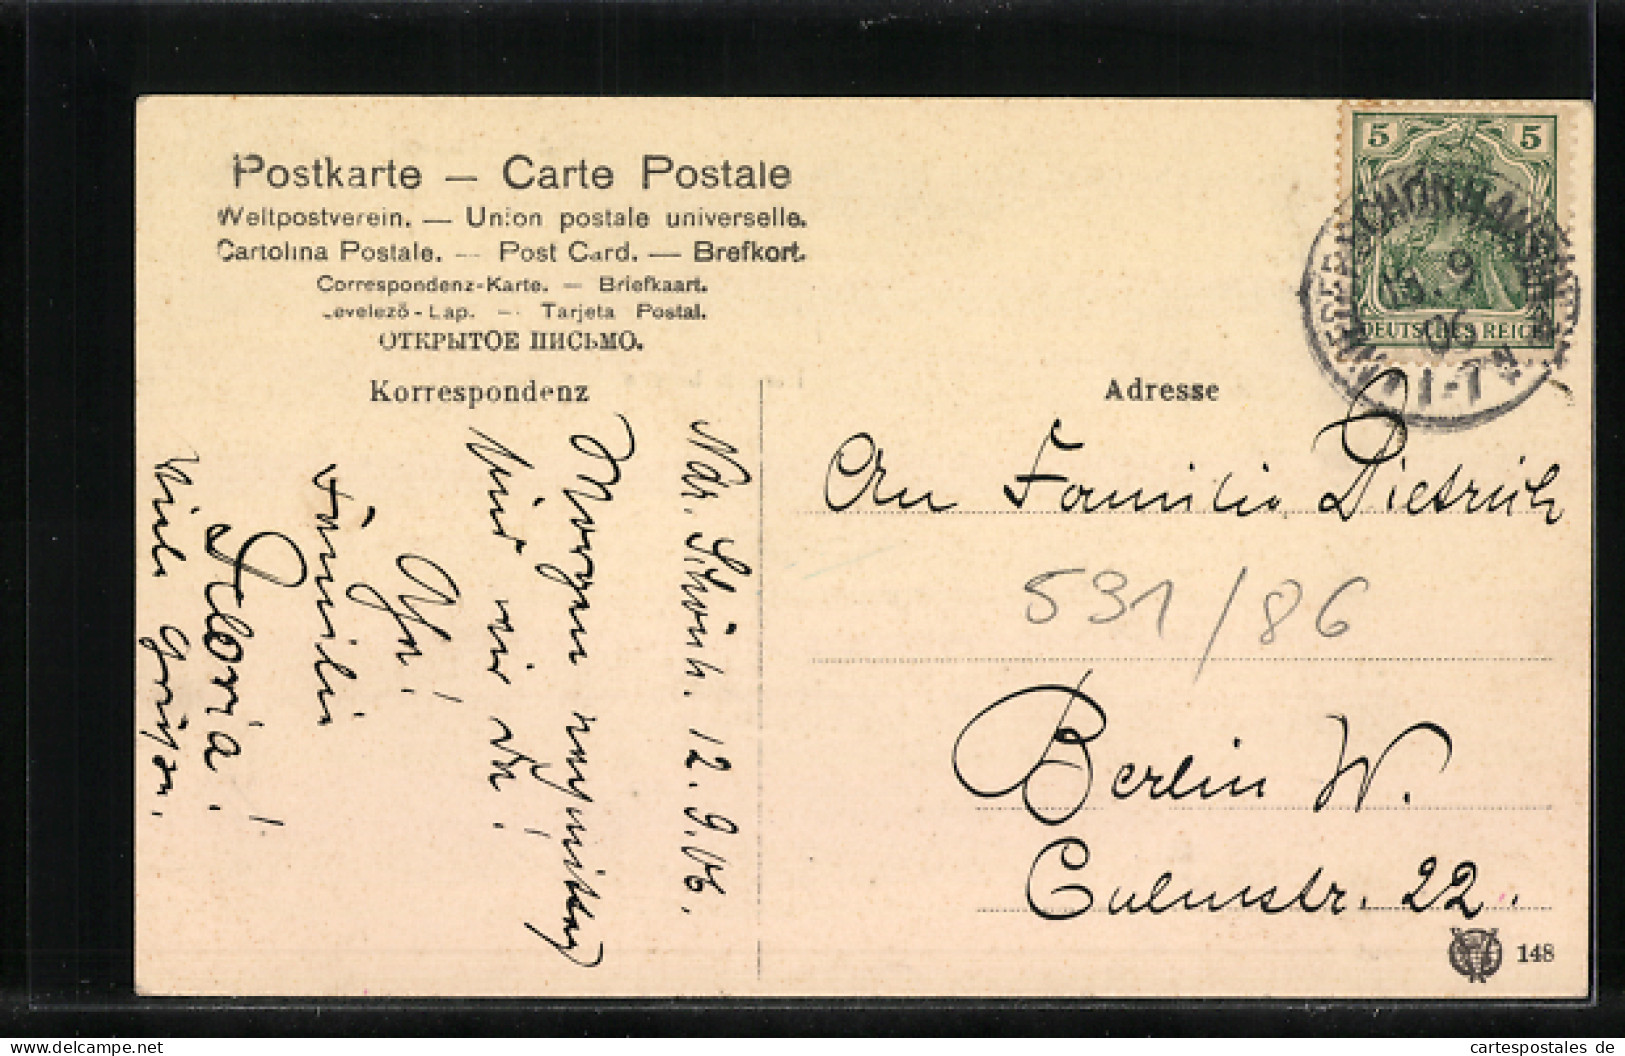 Postkarte — Carte Postale
Weltpostverein. — Union postale universelle.
Cartolina Postale. — Post Card. — Brefkort.
Correspondenz-Karte. — Briefkaart.
Levelező-Lap. — Tarjeta Postal.
ОТКРЫТОЕ ПИСЬМО.
Korrespondenz
Ndr. Schönh. 12.9.06.
Morgen nachmittag
sind wir da!
Familie
Viele Grüße.
5 5
DEUTSCHES REICH
NIEDERSCHÖNHAUSEN
9
06
Adresse
An Familie Dietrich
531/86
Berlin W.
Culmstr. 22.
148
cartespostales de